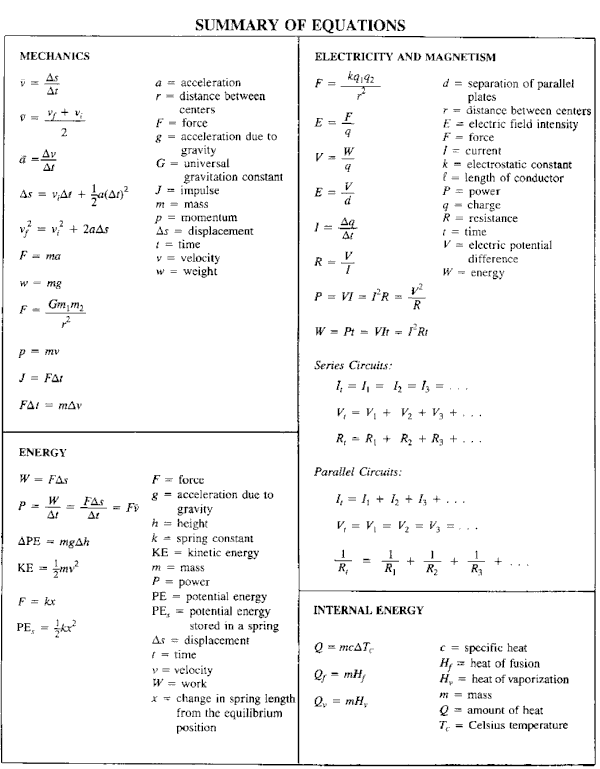 SUMMARY OF EQUATIONS
MECHANICS
v̄ = Δs/Δt
v̄ = (v_f + v_i)/2
ā = Δv/Δt
Δs = v_iΔt + ½a(Δt)²
v_f² = v_i² + 2aΔs
F = ma
w = mg
F = Gm₁m₂/r²
p = mv
J = FΔt
FΔt = mΔv
a = acceleration
r = distance between
centers
F = force
g = acceleration due to
gravity
G = universal
gravitation constant
J = impulse
m = mass
p = momentum
Δs = displacement
t = time
v = velocity
w = weight
ENERGY
W = FΔs
P = W/Δt = FΔs/Δt = Fv̄
ΔPE = mgΔh
KE = ½mv²
F = kx
PE_s = ½kx²
F = force
g = acceleration due to
gravity
h = height
k = spring constant
KE = kinetic energy
m = mass
P = power
PE = potential energy
PE_s = potential energy
stored in a spring
Δs = displacement
t = time
v = velocity
W = work
x = change in spring length
from the equilibrium
position
ELECTRICITY AND MAGNETISM
F = kq₁q₂/r²
E = F/q
V = W/q
E = V/d
I = Δq/Δt
R = V/I
P = VI = I²R = V²/R
W = Pt = VIt = I²Rt
d = separation of parallel
plates
r = distance between centers
E = electric field intensity
F = force
I = current
k = electrostatic constant
ℓ = length of conductor
P = power
q = charge
R = resistance
t = time
V = electric potential
difference
W = energy
Series Circuits:
I_t = I₁ = I₂ = I₃ = . . .
V_t = V₁ + V₂ + V₃ + . . .
R_t = R₁ + R₂ + R₃ + . . .
Parallel Circuits:
I_t = I₁ + I₂ + I₃ + . . .
V_t = V₁ = V₂ = V₃ = . . .
1/R_t = 1/R₁ + 1/R₂ + 1/R₃ + . . .
INTERNAL ENERGY
Q = mcΔT_c
Q_f = mH_f
Q_v = mH_v
c = specific heat
H_f = heat of fusion
H_v = heat of vaporization
m = mass
Q = amount of heat
T_c = Celsius temperature